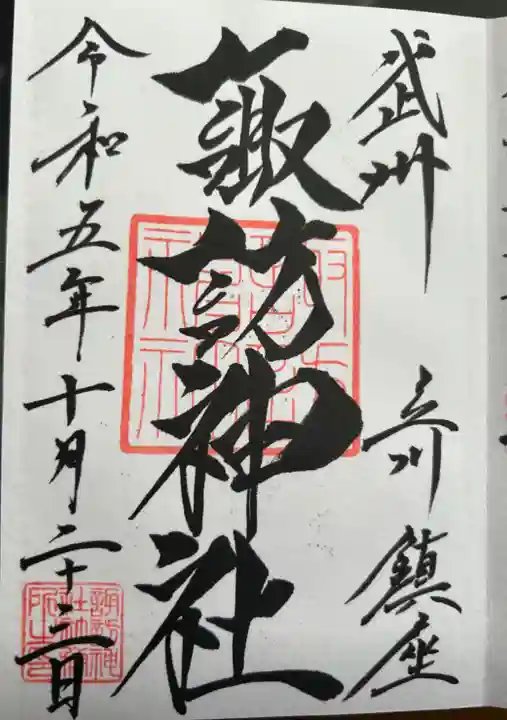 武州 立川鎮座
諏訪神社
令和五年十月二十三日